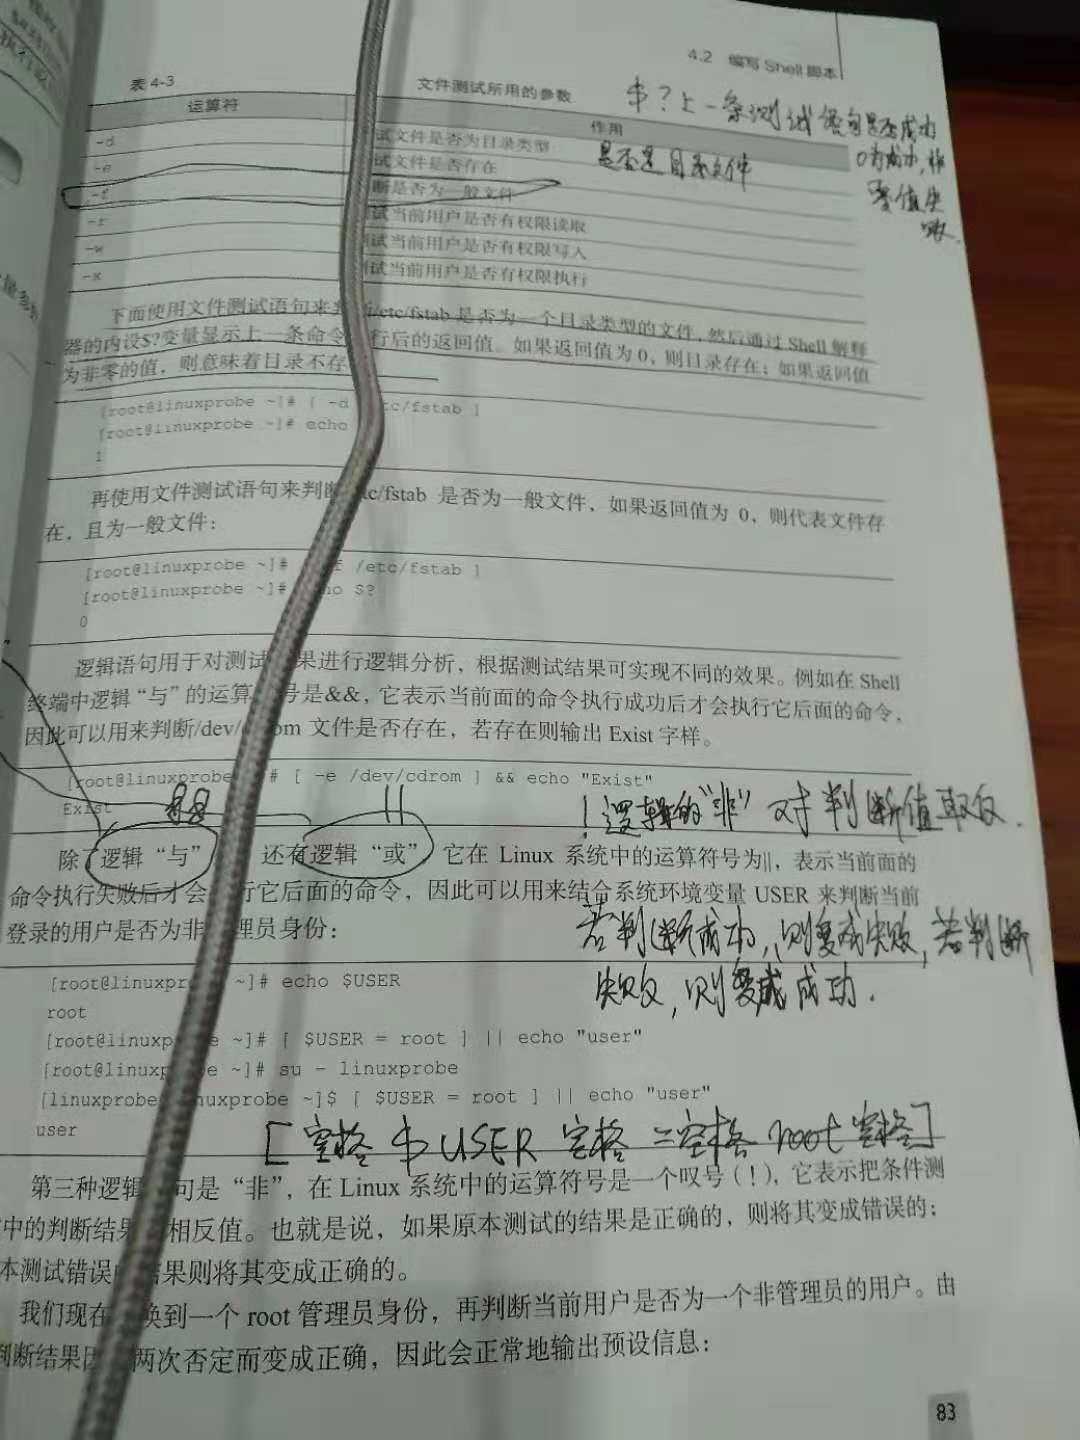 4.2 编写 Shell 脚本
表 4-3 文件测试所用的参数
$?上一条测试语句是否成功
0为成功,非
零值失
败.
运算符 作用
-d 试文件是否为目录类型 是否是目录文件
-e 试文件是否存在
-f 断是否为一般文件
-r 试当前用户是否有权限读取
-w 试当前用户是否有权限写入
-x 试当前用户是否有权限执行
下面使用文件测试语句来判 /etc/fstab 是否为一个目录类型的文件，然后通过 Shell 解释
器的内设$?变量显示上一条命令 行后的返回值。如果返回值为 0，则目录存在；如果返回值
为非零的值，则意味着目录不存
[root@linuxprobe ~]# [ -d etc/fstab ]
[root@linuxprobe ~]# echo
1
再使用文件测试语句来判断 tc/fstab 是否为一般文件，如果返回值为 0，则代表文件存
在，且为一般文件：
[root@linuxprobe ~]# f /etc/fstab ]
[root@linuxprobe ~]# ho $?
0
逻辑语句用于对测试 果进行逻辑分析，根据测试结果可实现不同的效果。例如在 Shell
终端中逻辑“与”的运算 号是&&，它表示当前面的命令执行成功后才会执行它后面的命令，
因此可以用来判断/dev/ om 文件是否存在，若存在则输出 Exist 字样。
[root@linuxprobe # [ -e /dev/cdrom ] && echo "Exist"
Exist
&& ||
!逻辑的"非" 对判断值取反.
除了逻辑“与” 还有逻辑“或”，它在 Linux 系统中的运算符号为||，表示当前面的
命令执行失败后才会 行它后面的命令，因此可以用来结合系统环境变量 USER 来判断当前
登录的用户是否为非 理员身份：
若判断成功,则变成失败,若判断
失败,则变成成功.
[root@linuxpr e ~]# echo $USER
root
[root@linuxp e ~]# [ $USER = root ] || echo "user"
[root@linuxp be ~]# su - linuxprobe
[linuxprobe nuxprobe ~]$ [ $USER = root ] || echo "user"
user
[空格$USER 空格=空格root空格]
第三种逻辑 句是“非”，在 Linux 系统中的运算符号是一个叹号（!），它表示把条件测
中的判断结果 相反值。也就是说，如果原本测试的结果是正确的，则将其变成错误的；
本测试错误 结果则将其变成正确的。
我们现在 换到一个 root 管理员身份，再判断当前用户是否为一个非管理员的用户。由
判断结果因 两次否定而变成正确，因此会正常地输出预设信息：
83